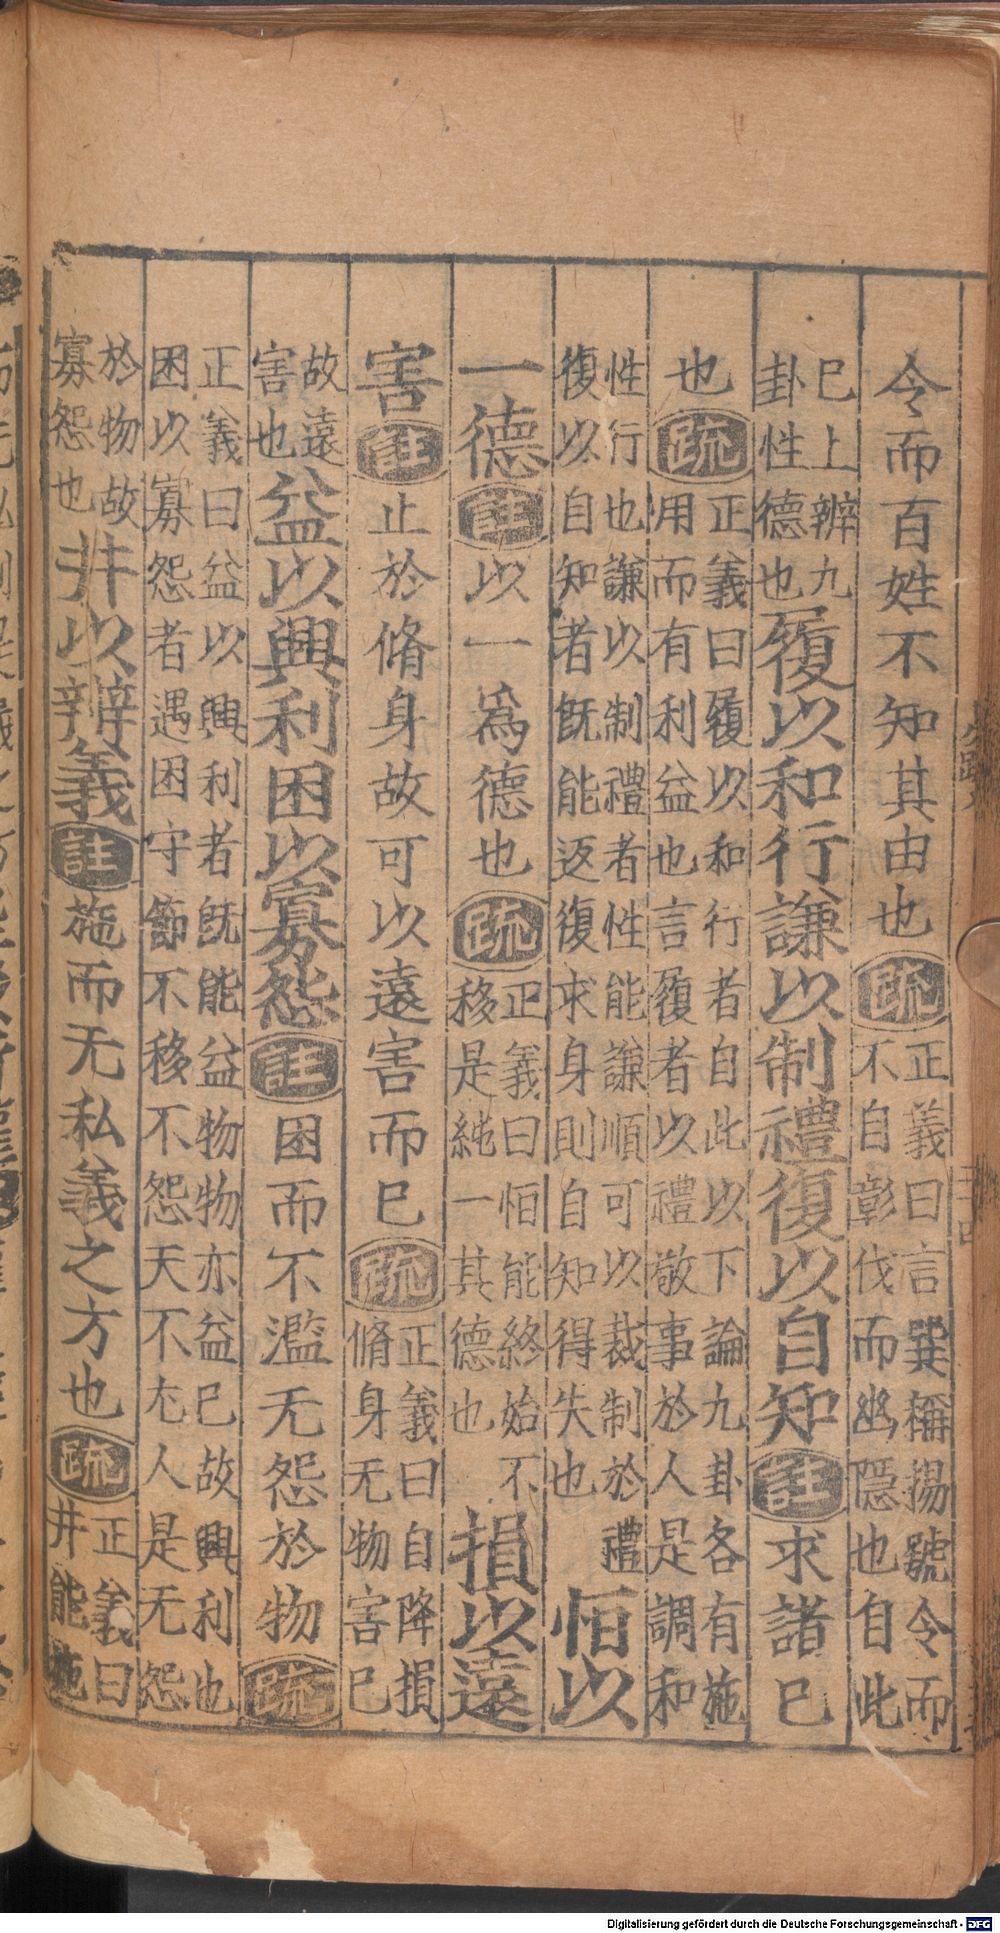 令而百姓不知其由也疏正義曰言巽稱揚號令而不自彰伐而幽隱也自此
已上辨九卦性德也履以和行謙以制禮復以自知註求諸已
也疏正義曰履以和行者自此以下論九卦各有施用而有利益也言履者以禮敬事於人是調和
性行也謙以制禮者性能謙順可以裁制於禮復以自知者旣能返復求身則自知得失也恒以
一德註以一爲德也疏正義曰恒能終始不移是純一其德也損以遠
害註止於脩身故可以遠害而已疏正義曰自降損脩身无物害已
故遠害也益以興利困以寡怨註困而不濫无怨於物疏
正義曰益以興利者旣能益物物亦益已故興利也困以寡怨者遇困守節不移不怨天不尤人是无怨
於物故寡怨也井以辨義註施而无私義之方也疏正義曰井能施
Digitalisierung gefördert durch die Deutsche Forschungsgemeinschaft - DFG